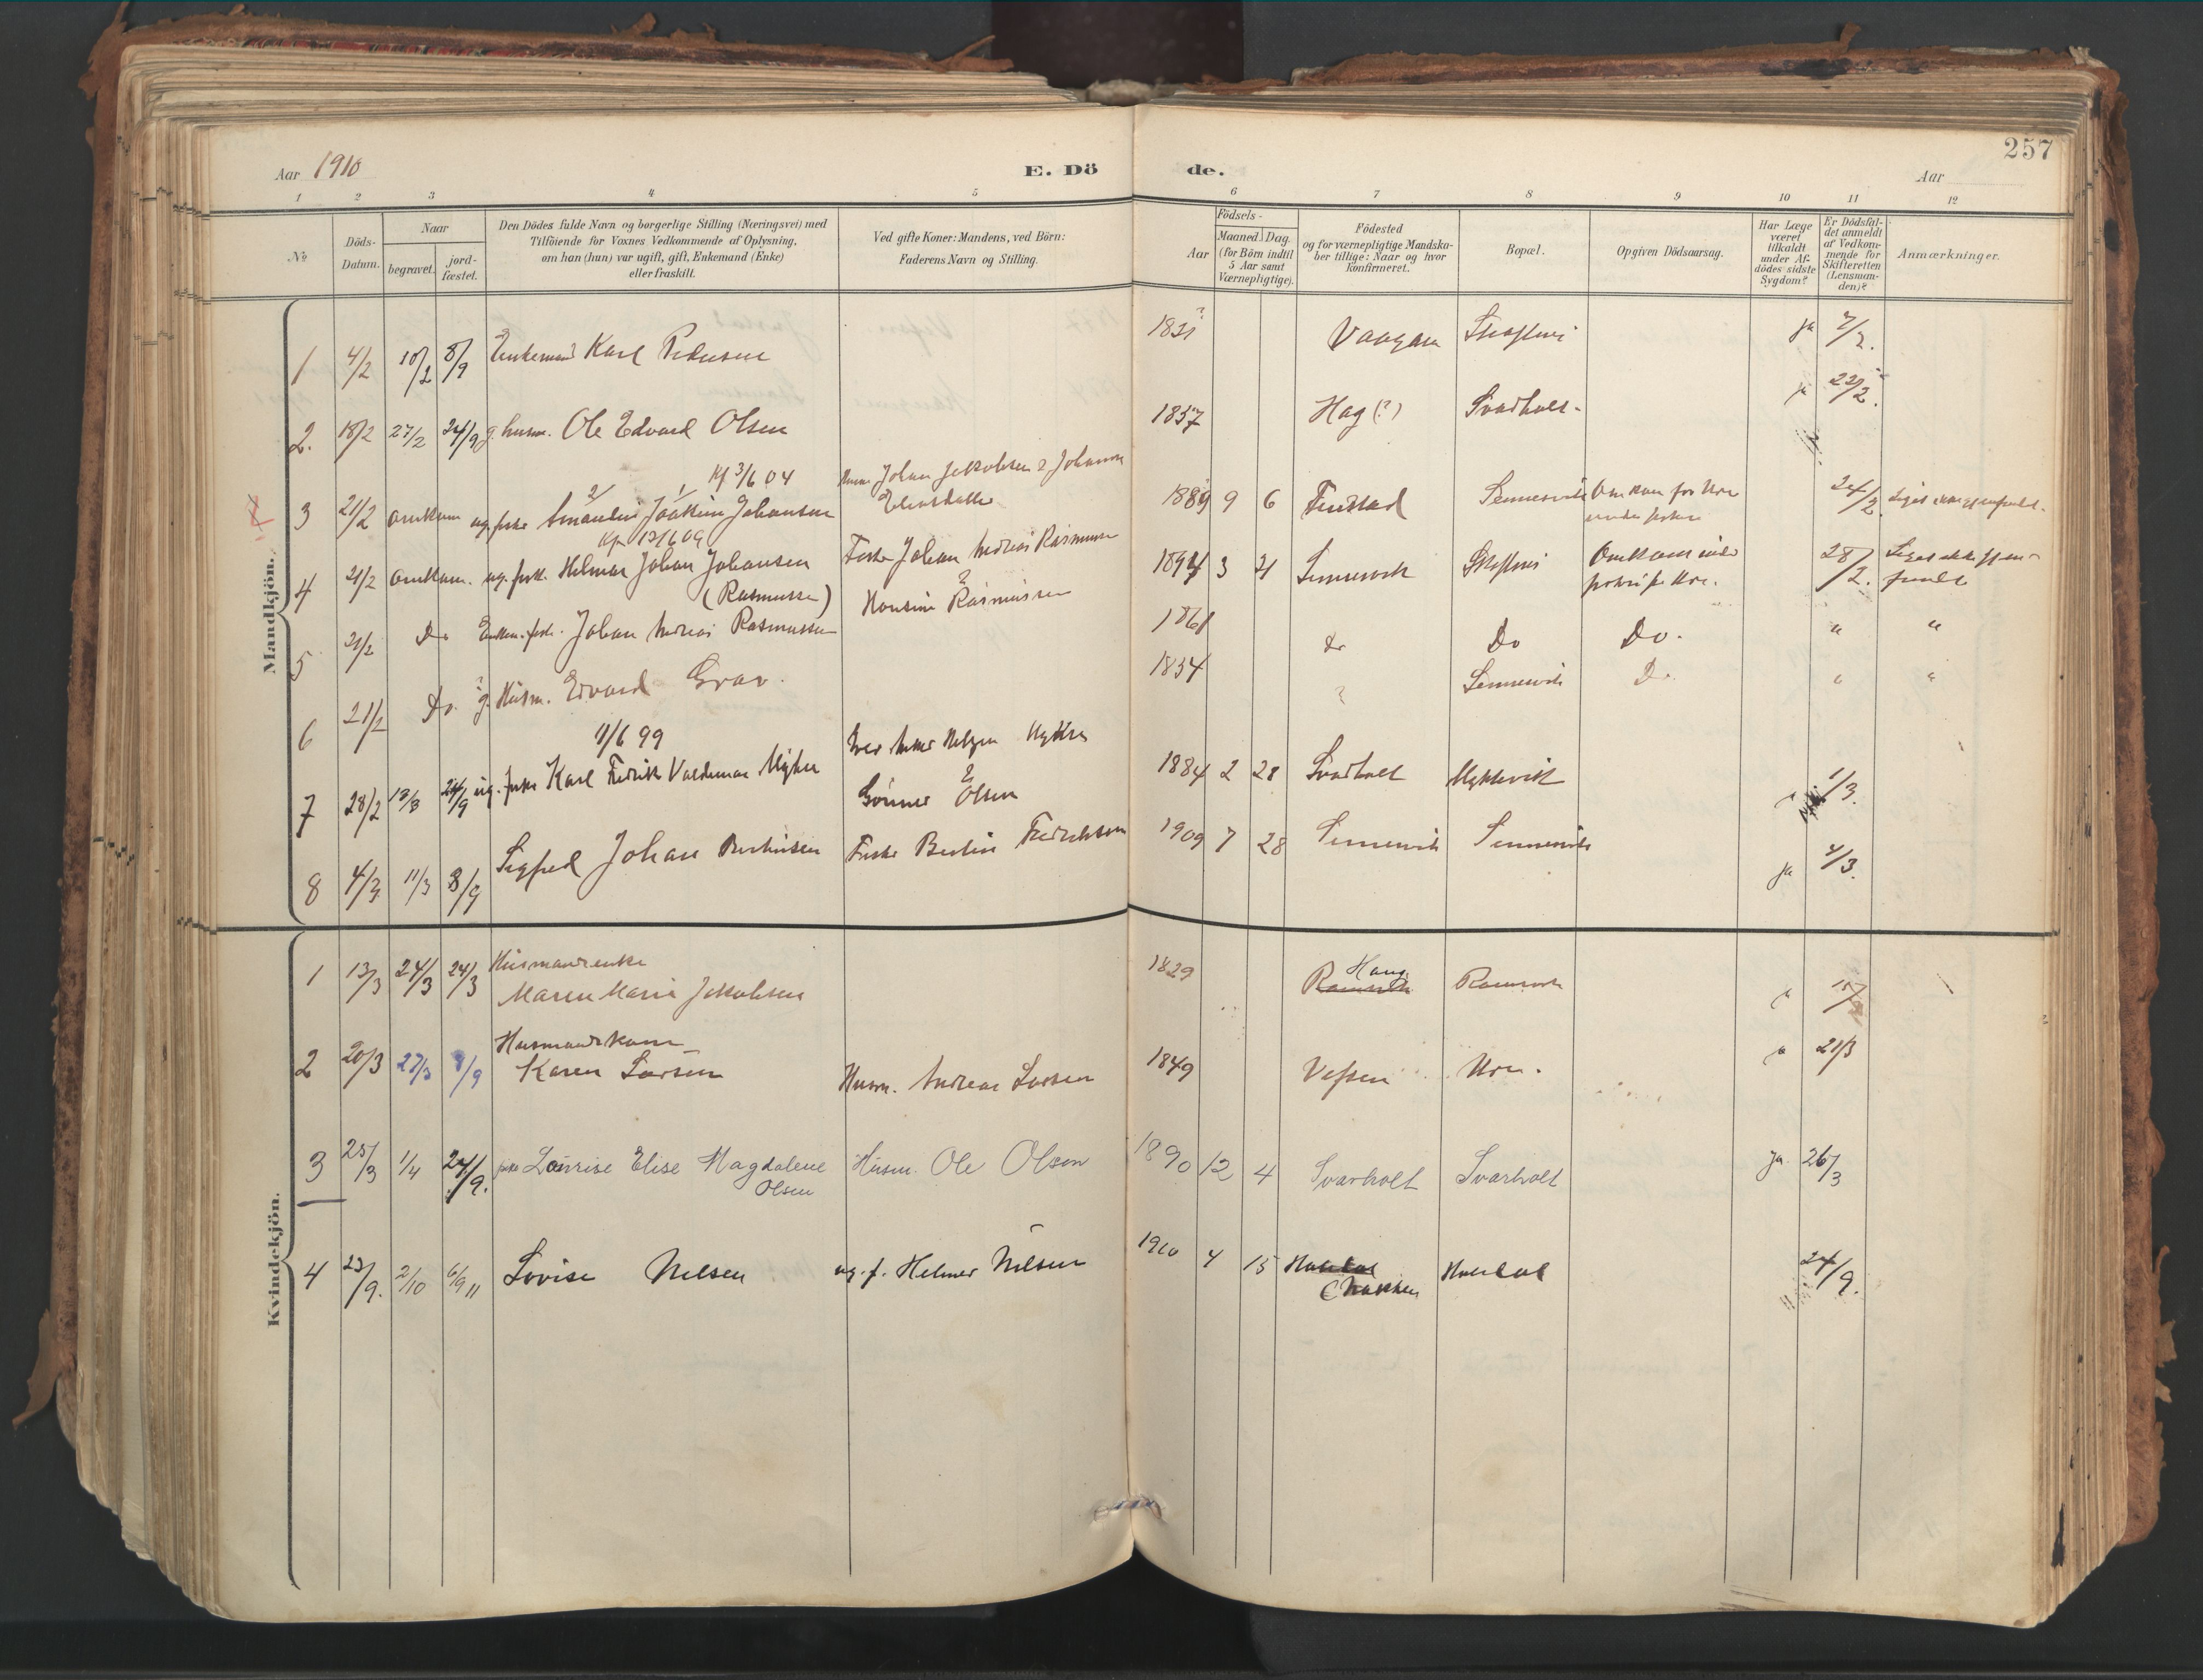 257
Aar 1910
E. Dö
de.
Aar
1 2 3 4 5 6 7 8 9 10 11 12
№
Döds-Datum.
Naar
begravet.
jord-fæstet.
Den Dödes fulde Navn og borgerlige Stilling (Næringsvei) med
Tilföiende for Voxnes Vedkommende af Oplysning,
om han (hun) var ugift, gift, Enkemand (Enke)
eller fraskilt.
Ved gifte Koner: Mandens, ved Börn:
Faderens Navn og Stilling.
Födsels-
Aar
Maaned. Dag.
(for Börn indtil
5 Aar samt
Værnepligtige).
Födested
og for værnepligtige Mandska-
ber tillige: Naar og hvor
konfirmeret.
Bopæl.
Opgiven Dödsaarsag.
Har Læge
været
tilkaldt
under Af-
dödes sidste
Sygdom?
Er Dödsfal-
det anmeldt
af Vedkom-
mende for
Skifteretten
(Lensman-
den)?
Anmærkninger.
Mandkjön.
1 4/2 10/2 8/9 Enkemand Karl Pedersen 1831? Vaagan ja 7/2.
2. 18/2 27/2 24/9 g. husm. Ole Edvard Olsen 1837 Hag (?) Svarholt. ja 22/2.
Kf 3/6 04 Johan Jakobsen & Johanna
3 21/2 omkom ug. fisker Joakim Johansen 1889 9 6 Finstad Sennesvik 24/2
Kf 13/6 09
4 21/2 omkom. ug. fisk. Helmer Johan Johansen Fisker Johan Andreas Rasmussen 1894 3 21 Sennesvik 28/2.
(Rasmussen) & Hansine Rasmussen
5 21/2 Do Enkem. fisk. Johan Andreas Rasmussen 1861 do Do Do. " "
6 21/2 Do. g. Husm. Edvard Grav. 1834 ? Sennesvik Do. " "
11/6 99
7 28/2 13/3 24/9 ug. fisker Karl Fredrik Valdemar 1884 2 28 Svarholt 1/3.
& Olsen
8 4/3 11/3 8/9 Sigfred Johan Bertinsen Fisker Bertin Fredriksen 1909 7 28 Sennesvik Sennesvik ja 4/3.
Kvindekjön.
1 13/3 24/3 24/3 Husmandsenke
Maren Maria Jakobsen 1829 Haug Ramsvik
2 20/3 27/3 8/9 Husmandskone
Karen Larsen Husm. Andreas Larsen 1849 Vefsen Ure. ja 21/3
3 25/3 1/4 24/9. Lovise Elise Magdalene Husm. Ole Olsen 1890 12 4 Svarholt Svarholt ja 26/3
Olsen
4 23/9. 2/10 6/9 11 Lovise Nilsen ug. f. Helmer Nilsen 1910 4 15 24/9.